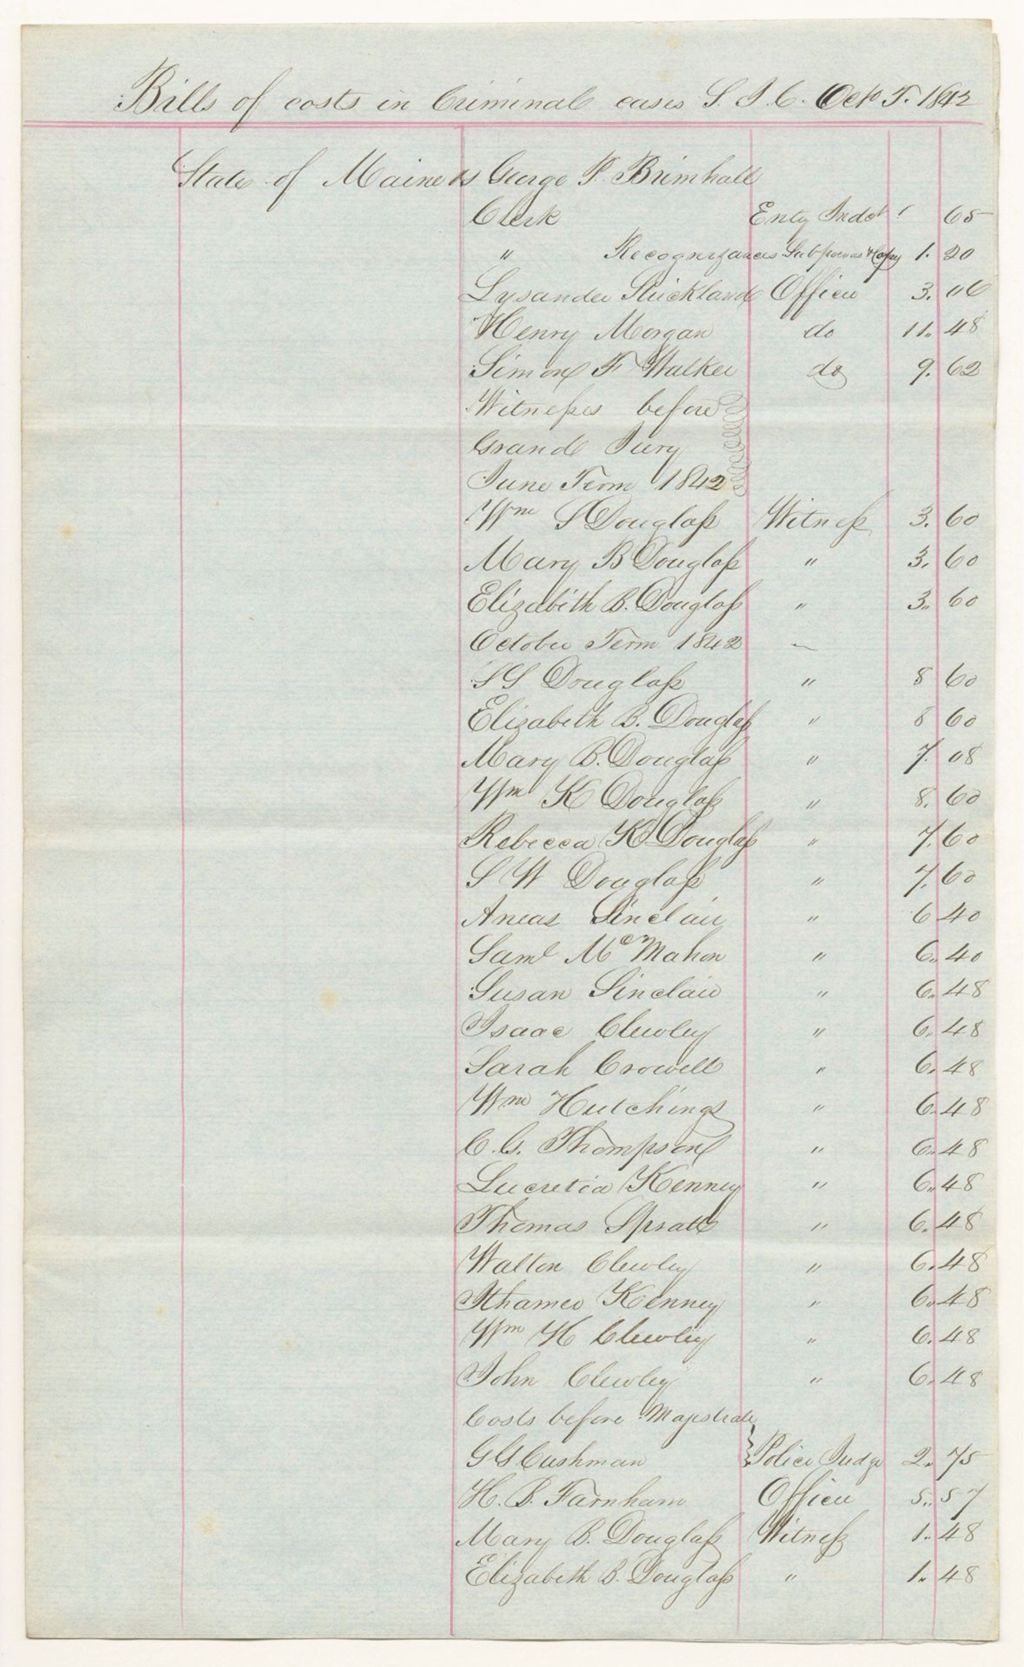 Bills of costs in Criminal cases S. J. C. Oct T. 1842
State of Maine vs George P. Brimhall
Clerk Enty Indt 65
" Recognizances Subpoenas & Copy 1. 20
Lysander Strickland Officer 3. 06
Henry Morgan do 11. 48
Simon F Walker do 9. 62
Witnesses before
Grand Jury
June Term 1842
Wm S Douglass Witness 3. 60
Mary B Douglass " 3. 60
Elizabeth B. Douglass " 3. 60
October Term 1842
S S Douglass " 8 60
Elizabeth B. Douglass " 8 60
Mary B. Douglass " 7. 08
Wm K Douglass " 8. 60
Rebecca K Douglass " 7. 60
S W Douglass " 7. 60
Aneas Sinclair " 6 40
Saml McMahon " 6. 40
Susan Sinclair " 6. 48
Isaac Clewley " 6. 48
Sarah Crowell " 6. 48
Wm Hutchings " 6. 48
C. G. Thompson " 6. 48
Lucretia Kenney " 6. 48
Thomas Spratt " 6. 48
Walton Clewley " 6. 48
Ithamer Kenney " 6. 48
Wm H Clewley " 6. 48
John Clewley " 6. 48
Costs before Magistrate
G G Cushman Police Judge 2. 75
H. B. Farnham Officer 5. 57
Mary B. Douglass Witness 1. 48
Elizabeth B. Douglass " 1. 48